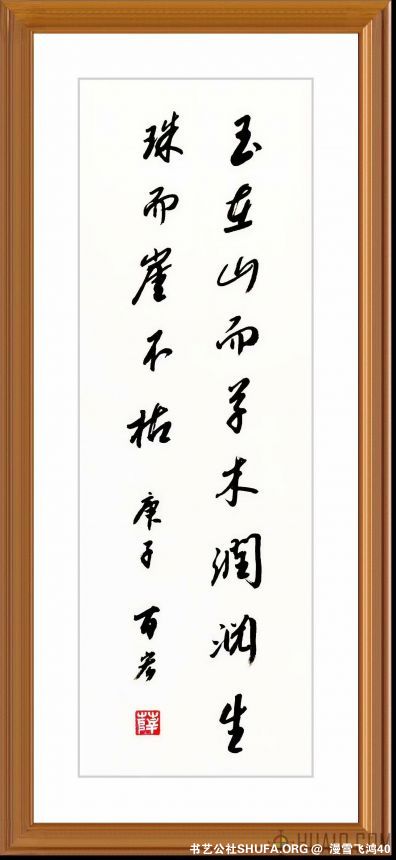 玉在山而草木潤渊生
珠而崖不枯
庚子
薛
书艺公社SHUFA.ORG @ 漫雪飞鸿40